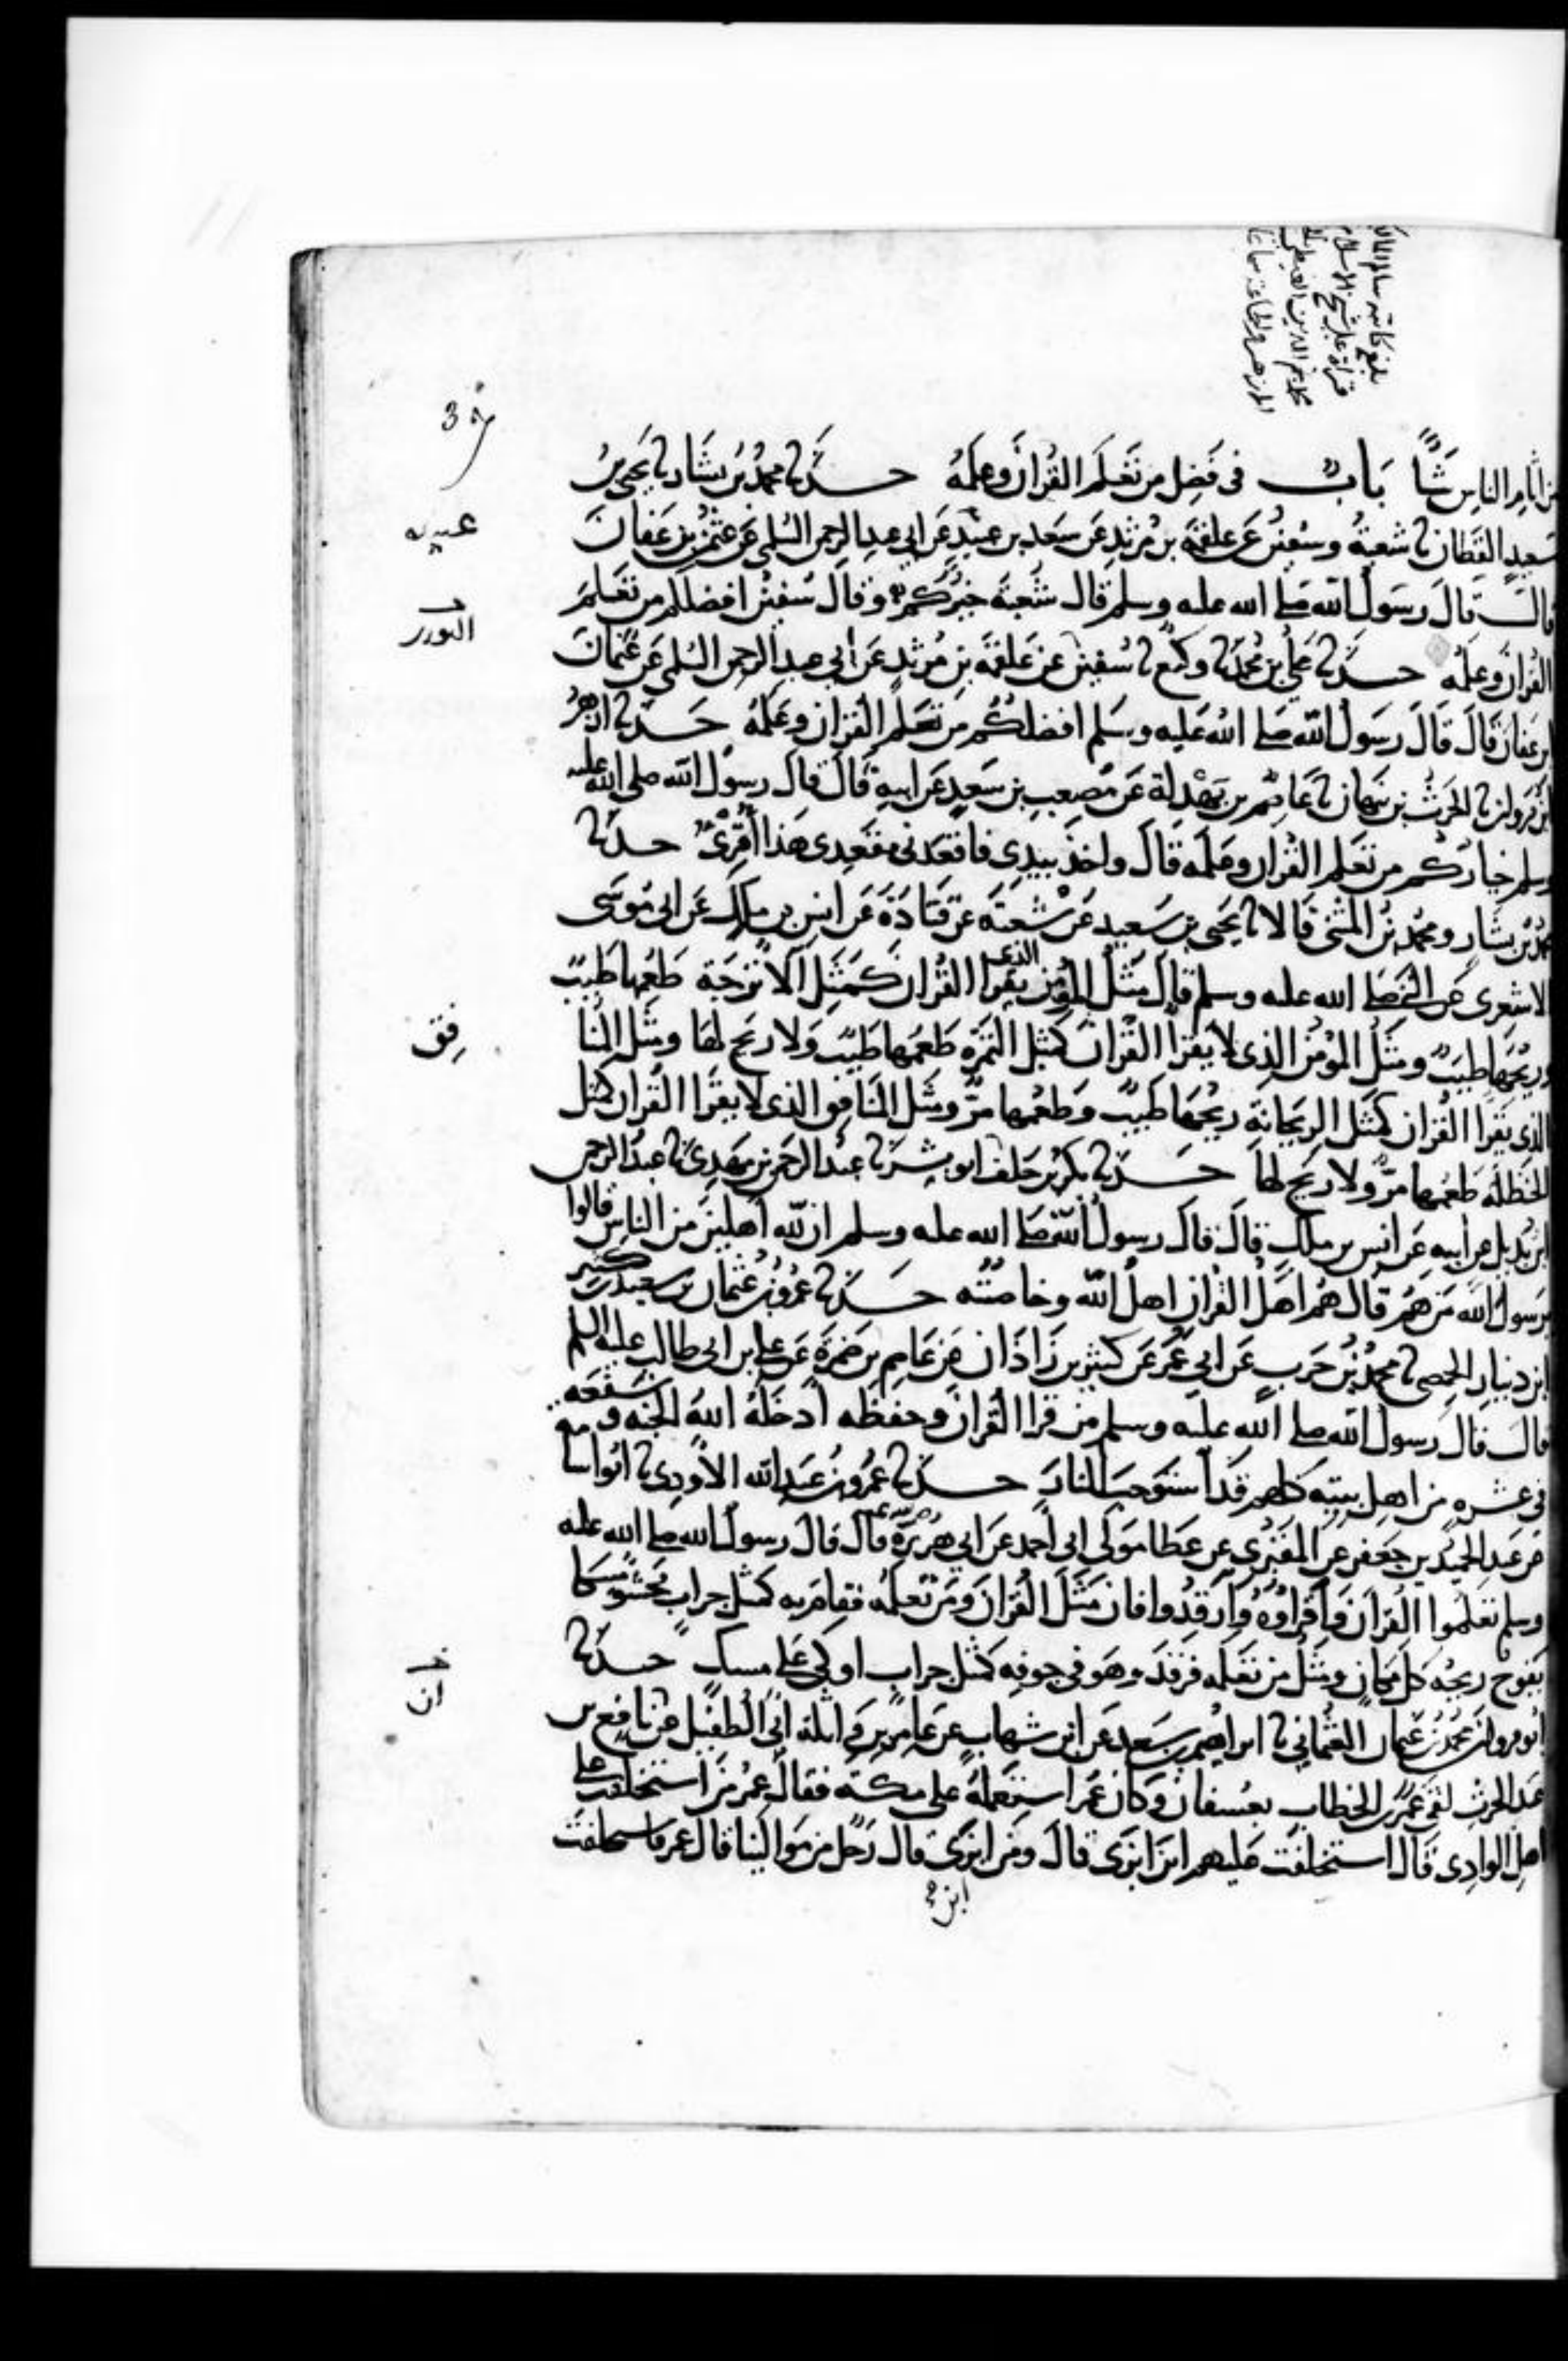 بلغ كاتبه سالم
قراة على شيخ الاسلام
محمد نجم الدين الغيطي
الازهر والجماعة سماعا
من اثام الناس شيأ باب في فضل من تعلم القران وعلمه حدثنا محمد بن بشار نا يحيى بن
سعيد القطان نا شعبة وسفين عن علقمة بن مرثد عن سعد بن عبيدة عن ابي عبد الرحمن السلمي عن عثمن بن عفان
قال قال رسول الله صلى الله عليه وسلم قال شعبة خيركم وقال سفين افضلكم من تعلم
القران وعلمه حدثنا علي بن محمد نا وكيع نا سفين عن علقمة بن مرثد عن ابي عبد الرحمن السلمي عن عثمان
ابن عفان قال قال رسول الله صلى الله عليه وسلم افضلكم من تعلم القران وعلمه حدثنا ازهر
ابن مروان نا الحرث بن نبهان نا عاصم بن بهدلة عن مصعب بن سعد عن ابيه قال قال رسول الله صلى الله عليه
وسلم خياركم من تعلم القران وعلمه قال واخذ بيدي فاقعدني مقعدي هذا اقرئ حدثنا
محمد بن بشار ومحمد بن المثنى قالا نا يحيى بن سعيد عن شعبة عن قتادة عن انس بن ملك عن ابي موسى
الاشعري عن النبي صلى الله عليه وسلم قال مثل المؤمن الذي يقرا القران كمثل الاترجة طعمها طيب
وريحها طيب ومثل المؤمن الذي لا يقرا القران كمثل التمرة طعمها طيب ولا ريح لها ومثل المنا
فق
الذي يقرا القران كمثل الريحانة ريحها طيب وطعمها مر ومثل المنافق الذي لا يقرا القران كمثل
الحنظلة طعمها مر ولا ريح لها حدثنا بكر بن خلف ابو بشر نا عبد الرحمن بن مهدي نا عبد الرحمن
ابن بديل عن ابيه عن انس بن ملك قال قال رسول الله صلى الله عليه وسلم ان لله اهلين من الناس قالوا
يرسول الله من هم قال هم اهل القران اهل الله وخاصته حدثنا عمرو بن عثمان بن سعيد بن كثير
ابن دينار الحمصي نا محمد بن حرب عن ابي عمر عن كثير بن زاذان عن عاصم بن ضمرة عن علي ابن ابي طالب عليه السلم
قال قال رسول الله صلى الله عليه وسلم من قرا القران وحفظه ادخله الله الجنه وشفعه
في عشرة من اهل بيته كلهم قد استوجب النار حدثنا عمرو بن عبد الله الاودي نا ابو اسا
مة
عن عبد الحميد بن جعفر عن المقبري عن عطا مولى ابي احمد عن ابي هريرة قال قال رسول الله صلى الله عليه
وسلم تعلموا القران واقراوه وارقدوا فان مثل القران ومن تعلمه فقام به كمثل جراب محشو مسكا
يفوح ريحه كل مكان ومثل من تعلمه فرقد وهو في جوفه كمثل جراب اوكي على مسك حدثنا
ابو مروان محمد بن عثمان العثماني نا ابراهيم بن سعد عن ابن شهاب عن عامر بن واثلة ابي الطفيل عن نافع بن
عبد الحرث لقي عمر بن الخطاب بعسفان وكان عمر استعمله على مكة فقال عمر من استخلفت على
اهل الوادي قال استخلفت عليهم ابن ابزى قال ومن ابن ابزى قال رجل من موالينا قال عمر فاستخلفت
عبيده
الثوري
ان